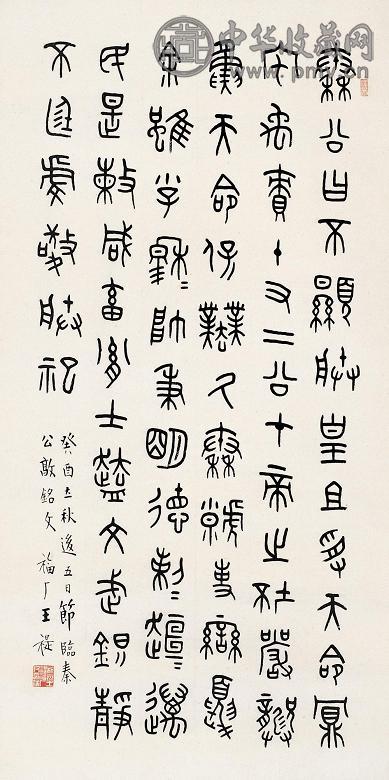 中华收藏网
秦公曰不顯朕皇且受天命鼏
宅禹責十又二公才帝之坏嚴龏
夤天命保業厥秦虩事蠻夏
余雖小子穆=帥秉明德剌=趄=邁
民是敕咸畜胤士盍=文武鎮靜
不廷虔敬朕祀
癸酉立秋後五日節臨秦
公敦銘文 福厂王禔